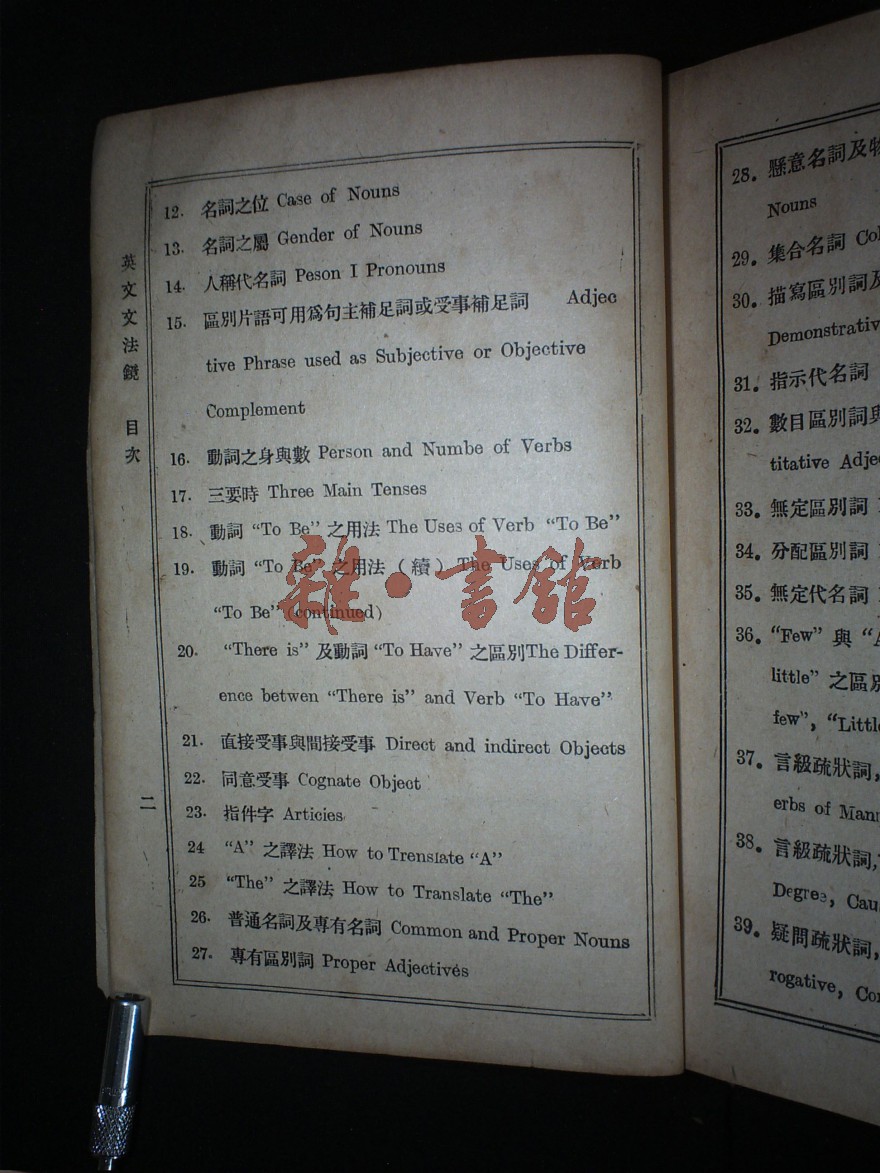 英文文法鏡 目次
二
12. 名詞之位 Case of Nouns
13. 名詞之屬 Gender of Nouns
14. 人稱代名詞 Peson I Pronouns
15. 區別片語可用爲句主補足詞或受事補足詞 Adjec
tive Phrase used as Subjective or Objective
Complement
16. 動詞之身與數 Person and Numbe of Verbs
17. 三要時 Three Main Tenses
18. 動詞 “To Be” 之用法 The Uses of Verb “To Be”
19. 動詞 “To Be” 之用法（續）The Uses of Verb
“To Be” (continued)
20. “There is” 及動詞 “To Have” 之區別The Differ-
ence betwen “There is” and Verb “To Have”
21. 直接受事與間接受事 Direct and indirect Objects
22. 同意受事 Cognate Object
23. 指件字 Articies
24 “A” 之譯法 How to Trenslate “A”
25 “The” 之譯法 How to Translate “The”
26. 普通名詞及專有名詞 Common and Proper Nouns
27. 專有區別詞 Proper Adjectives
雜·書館
28. 懸意名詞及物
Nouns
29. 集合名詞 Col
30. 描寫區別詞及
Demonstrativ
31. 指示代名詞
32. 數目區別詞與
titative Adje
33. 無定區別詞
34. 分配區別詞
35. 無定代名詞
36. “Few” 與 “A
little” 之區別
few”, “Little
37. 言級疏狀詞,
erbs of Mann
38. 言級疏狀詞,
Degree, Cau
39. 疑問疏狀詞,
rogative, Con